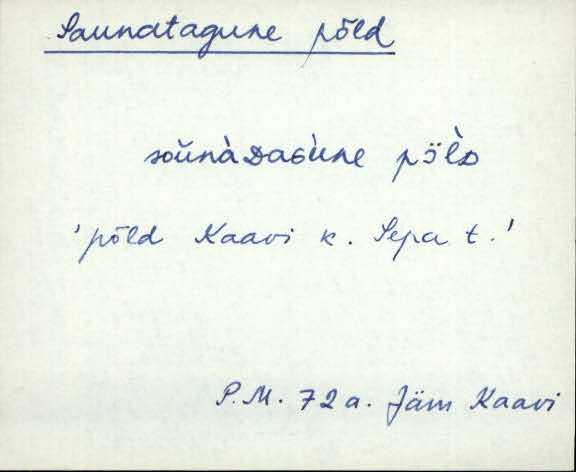 Saunatagune põld
sŏunàᴅaɢùne pö̆l̀ᴅ
'põld Kaavi k. Sepa t.'
P.M. 72 a. Jäm Kaavi